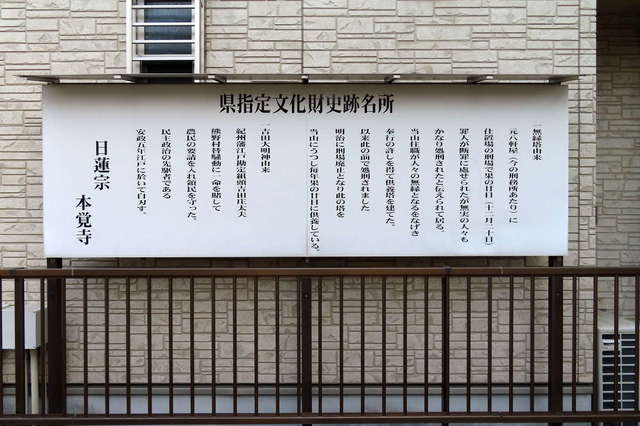 県指定文化財史跡名所
一無縁塔由来
元八軒屋(今の刑務所あたり)に
仕置場の刑場で果の廿日(十二月二十日)
罪人が断罪に処せられたが無実の人々も
かなり処刑されたと伝えられて居る。
当山住職が人々の無縁となるをなげき
奉行の許しを得て供養塔を建てた。
以来此の前で処刑されました
明治に刑場廃止となり此の塔を
当山にうつし毎年果の廿日に供養している。
一吉田大明神由来
紀州藩江戸勘定組頭吉田庄太夫
熊野村替騒動に一命を賭して
農民の要請を入れ領民を守った。
民主政治の先駆者である
安政五年江戸に於いて自刃す。
日蓮宗 本覚寺